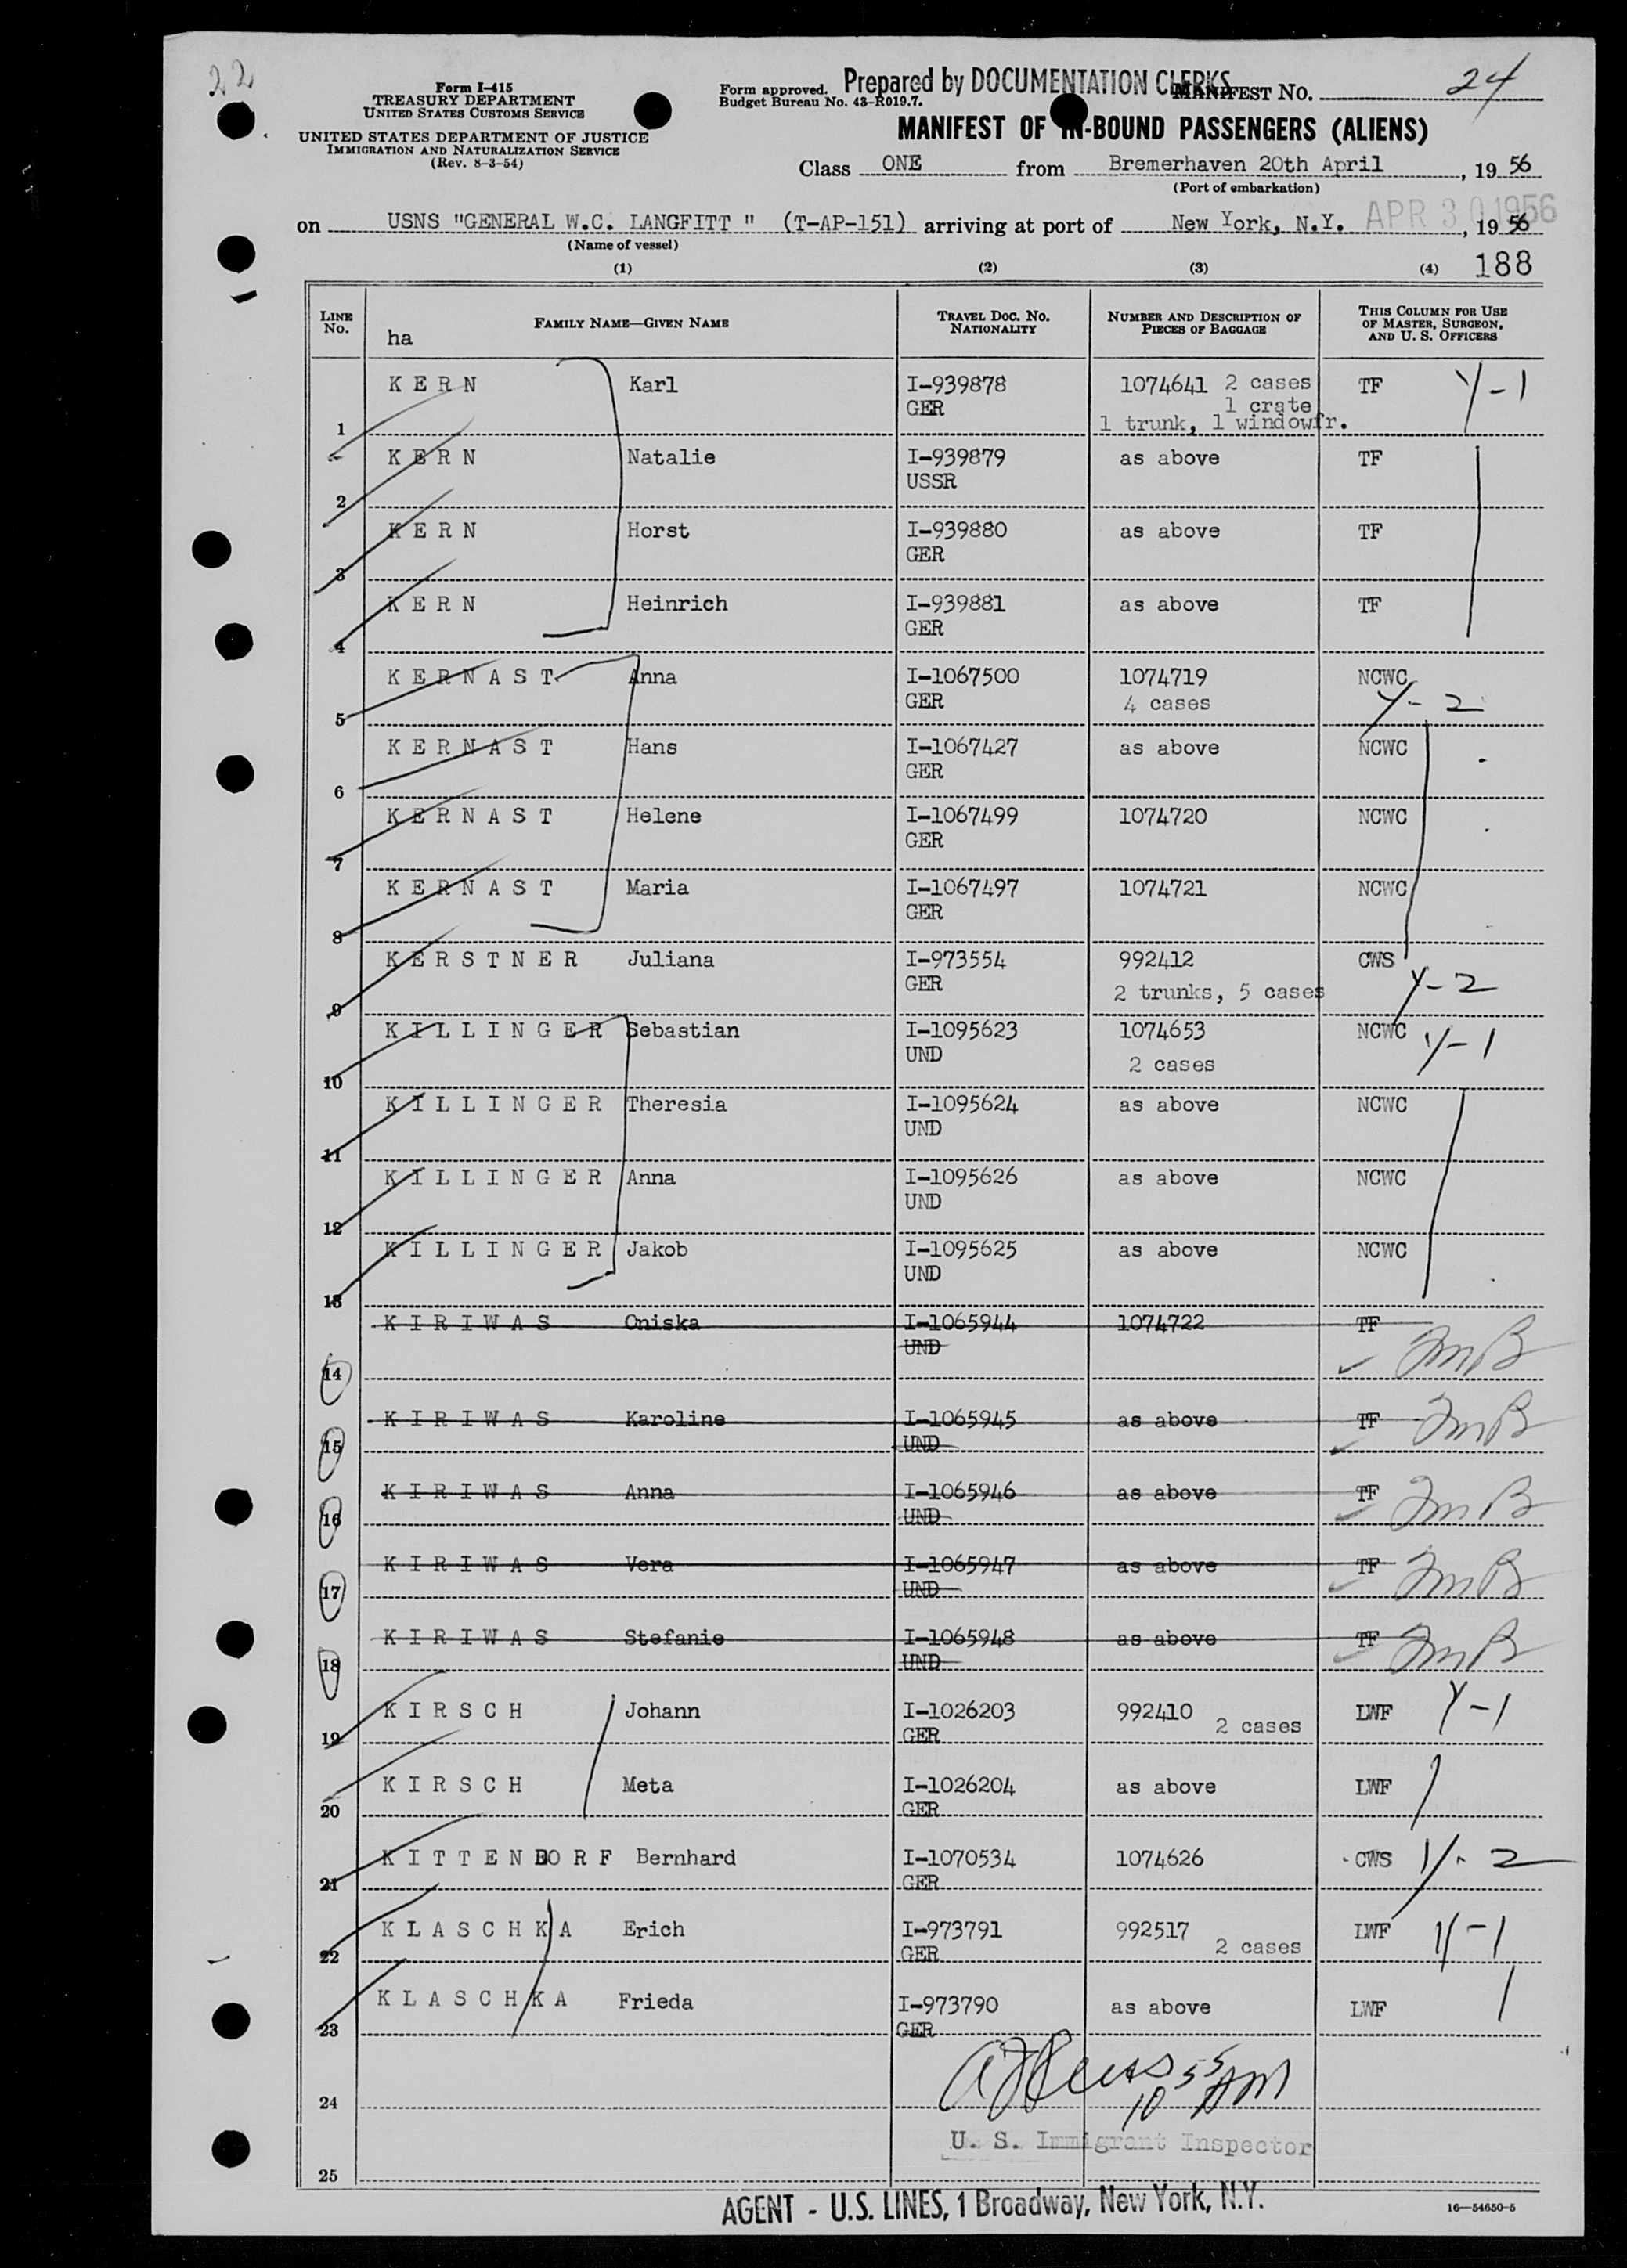 22
Form I-415
TREASURY DEPARTMENT
UNITED STATES CUSTOMS SERVICE
UNITED STATES DEPARTMENT OF JUSTICE
IMMIGRATION AND NATURALIZATION SERVICE
(Rev. 8-3-54)
Form approved.
Budget Bureau No. 43-R019.7.
Prepared by DOCUMENTATION CLERKS
MANIFEST NO. 24
MANIFEST OF IN-BOUND PASSENGERS (ALIENS)
Class ONE from Bremerhaven 20th April, 19 56
(Port of embarkation)
on USNS "GENERAL W.C. LANGFITT " (T-AP-151) arriving at port of New York, N.Y. APR 30 1956, 19 56
(Name of vessel)
(1) (2) (3) (4) 188
LINE No. FAMILY NAME—GIVEN NAME TRAVEL DOC. NO. NATIONALITY NUMBER AND DESCRIPTION OF PIECES OF BAGGAGE THIS COLUMN FOR USE OF MASTER, SURGEON, AND U. S. OFFICERS
ha
1 KERN Karl I-939878 GER 1074641 2 cases 1 crate 1 trunk, 1 windowfr. TF Y-1
2 KERN Natalie I-939879 USSR as above TF
3 KERN Horst I-939880 GER as above TF
4 KERN Heinrich I-939881 GER as above TF
5 KERNAST Anna I-1067500 GER 1074719 4 cases NCWC Y-2
6 KERNAST Hans I-1067427 GER as above NCWC
7 KERNAST Helene I-1067499 GER 1074720 NCWC
8 KERNAST Maria I-1067497 GER 1074721 NCWC
9 KERSTNER Juliana I-973554 GER 992412 2 trunks, 5 cases CWS Y-2
10 KILLINGER Sebastian I-1095623 UND 1074653 2 cases NCWC Y-1
11 KILLINGER Theresia I-1095624 UND as above NCWC
12 KILLINGER Anna I-1095626 UND as above NCWC
13 KILLINGER Jakob I-1095625 UND as above NCWC
14 KIRIWAS Oniska I-1065944 UND 1074722 TF
15 KIRIWAS Karoline I-1065945 UND as above TF
16 KIRIWAS Anna I-1065946 UND as above TF
17 KIRIWAS Vera I-1065947 UND as above TF
18 KIRIWAS Stefanie I-1065948 UND as above TF
19 KIRSCH Johann I-1026203 GER 992410 2 cases LWF Y-1
20 KIRSCH Meta I-1026204 GER as above LWF
21 KITTENDORF Bernhard I-1070534 GER 1074626 CWS Y-2
22 KLASCHKA Erich I-973791 GER 992517 2 cases LWF Y-1
23 KLASCHKA Frieda I-973790 GER as above LWF
24 10 55 AM
U. S. Immigrant Inspector
25
AGENT - U.S. LINES, 1 Broadway, New York, N.Y.
16—54650-5